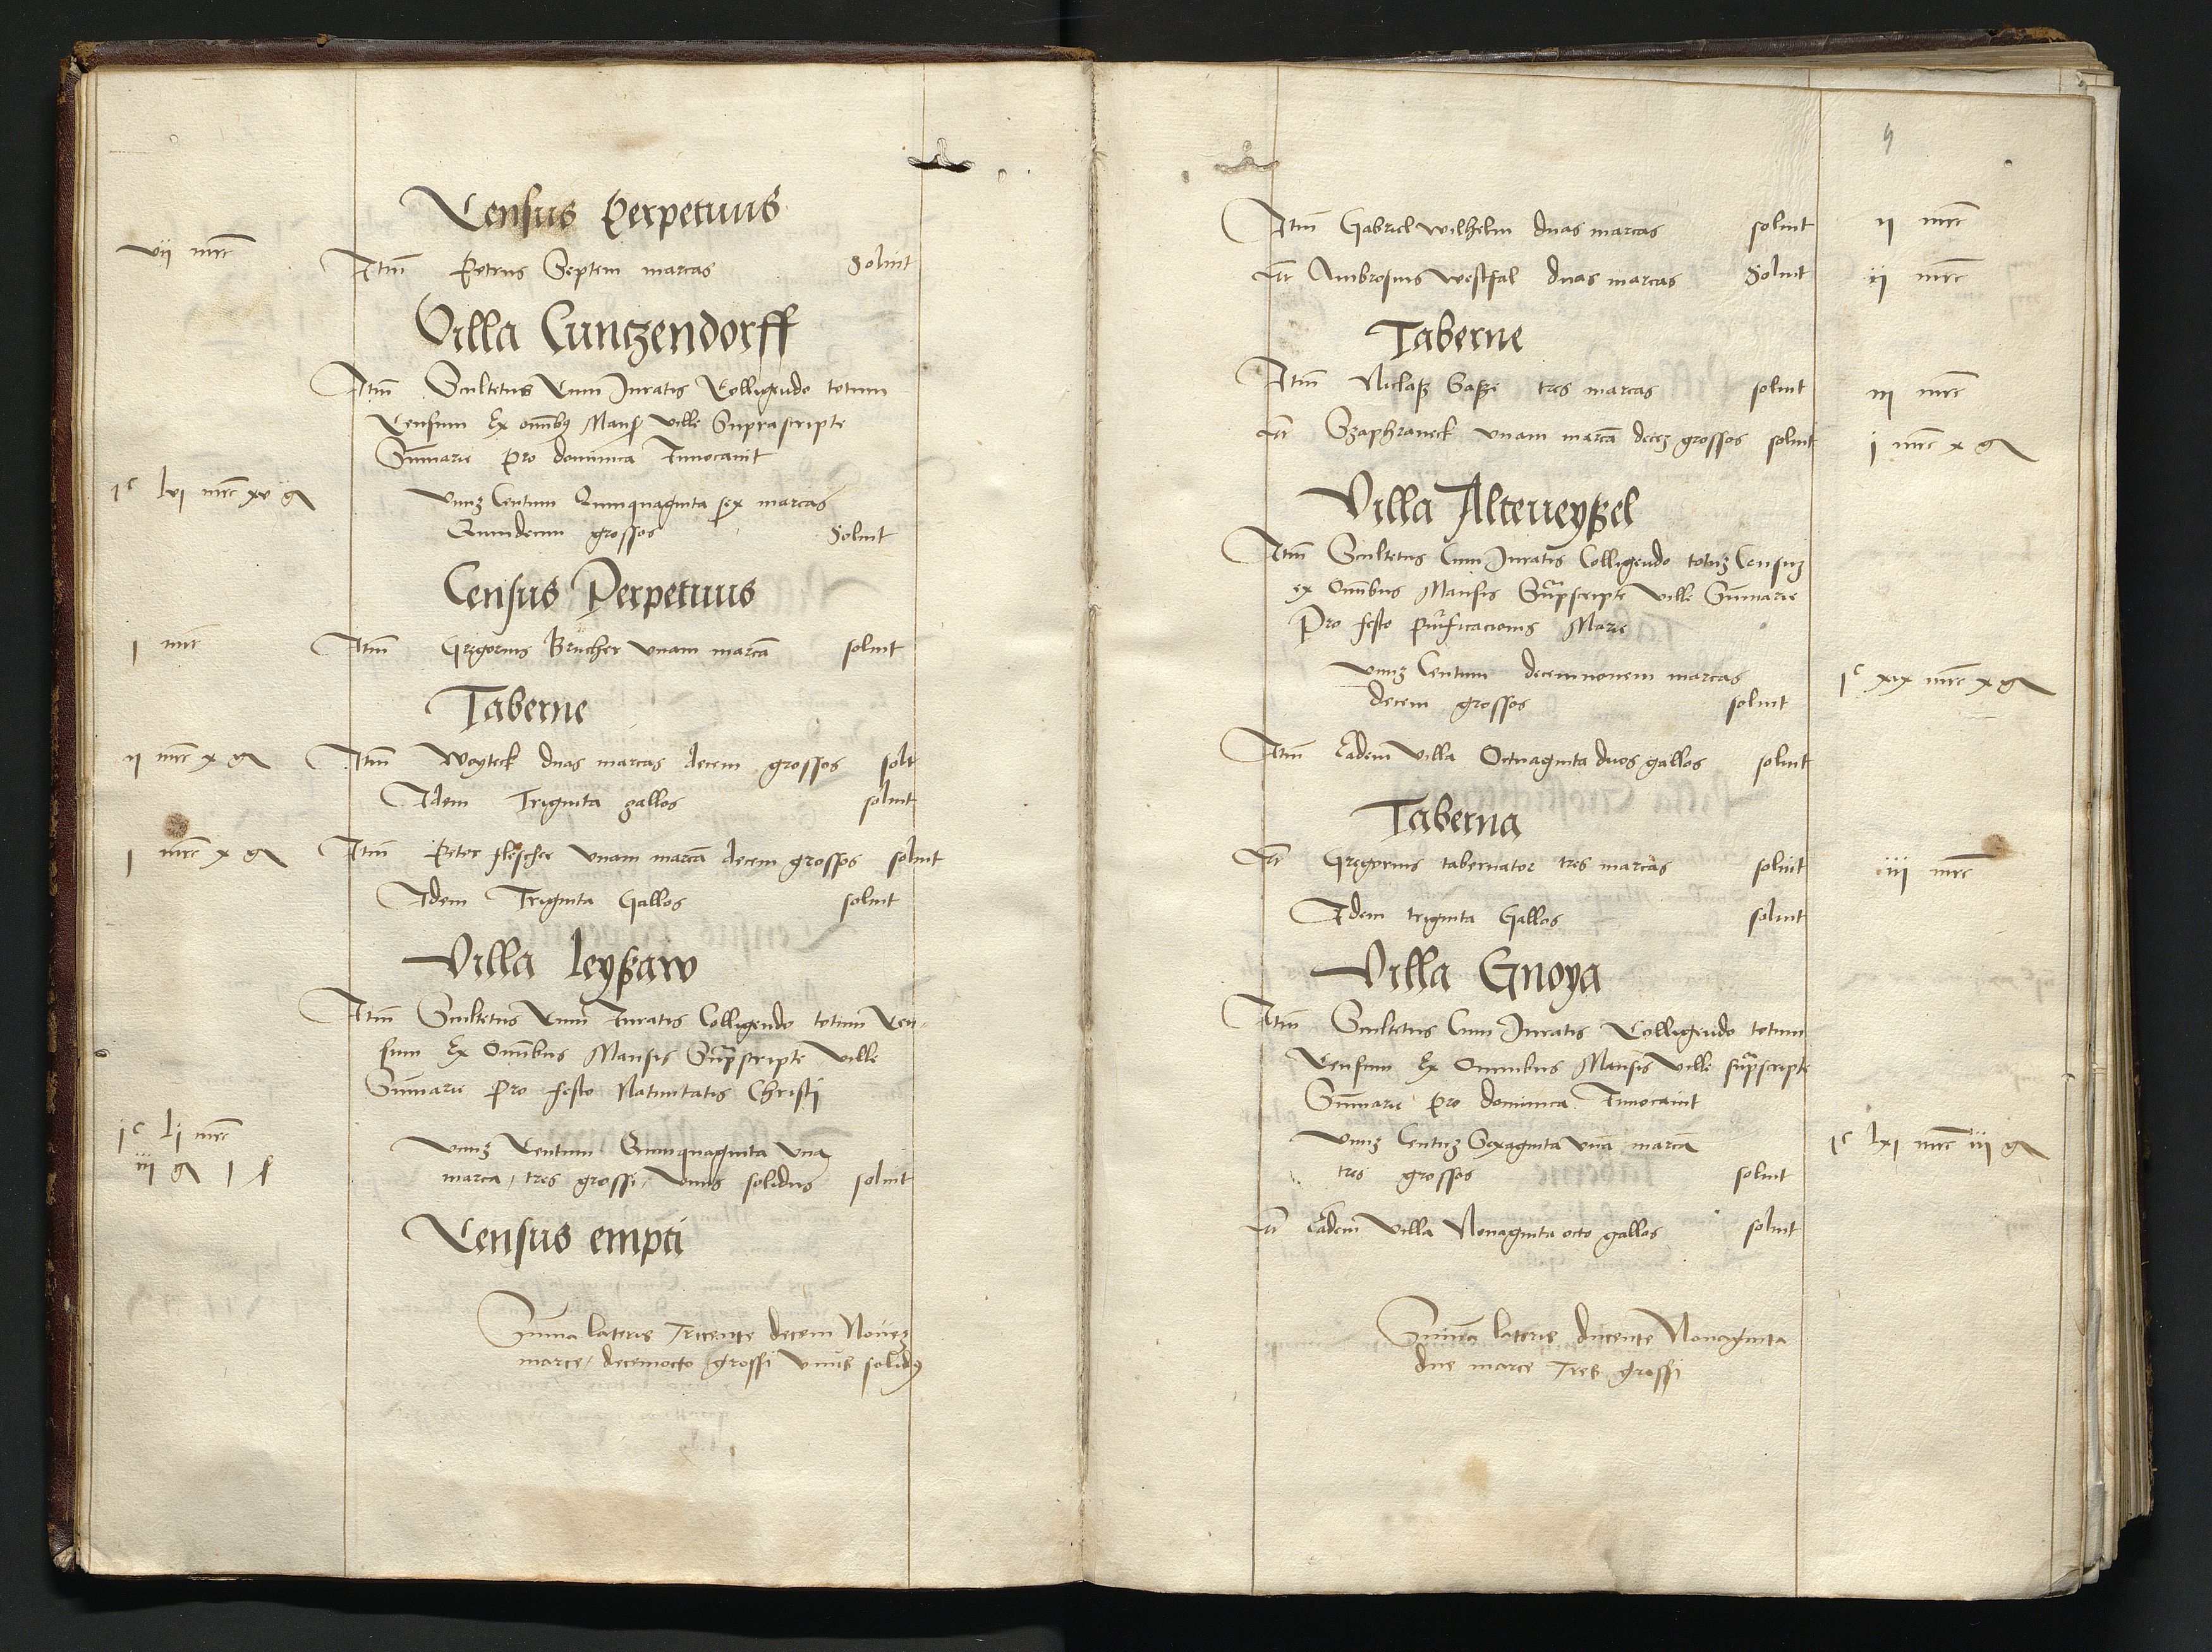 Census Perpetuus
vij mrc Itm̄ Petrus Septem marcas Soluit
Villa Cuntzendorff
Itm̄ Scultetus Cum Juratis Colligendo totum
Censum Ex om̄ibꝫ Mansꝭ ville Suprascripte
Sūmarie pro dominica Inuocauit
jᶜ lvj mrc xv gꝛ vnuꝫ Centum Quinquaginta sex marcas
Quindecim grossos Soluit
Census Perpetuus
j mrc Itm̄ Gregorius Brucher vnam marcā soluit
Taberne
ij mrc x gꝛ Itm̄ Woyteck duas marcas decem grossos solt
Idem Triginta gallos soluit
j mrc x gꝛ Itm̄ Peter flescher vnam marcā decem grossos soluit
Idem Triginta Gallos soluit
Villa leyßaw
Itm̄ Scultetus Cum Iuratis Colligendo totum Cen-
sum Ex Om̄ibus Mansis Supͣscripte ville
Sūmarie pro festo Natiuitatis Christi
jᶜ lj mrc vnuꝫ Centum Quinquaginta vna
iij gꝛ j ß marca, tres grossi, vnus solidus soluit
Census empti
Sūma lateris Tricente decem Noueꝫ
marce, decemocto grossi vnus solidꝰ
9
Itm̄ Gabriel wilhelm duas marcas soluit ij mrc
Itm̄ Ambrosius westfal duas marcas Soluit ij mrc
Taberne
Itm̄ Niclaß Saße tres marcas soluit iij mrc
Itm̄ Szaphraneck vnam marcā deceꝫ grossos soluit j mrc x gꝛ
Villa Alteueyßel
Itm̄ Scultetus Cum Juratis Colligendo totuꝫ Censuꝫ
ex Om̄ibus Mansis Supͣscripte ville Sūmarie
Pro festo purificacionis Marie
vnuꝫ Centum decemnouem marcas jᶜ xix mrc x gꝛ
decem grossos soluit
Itm̄ Eadem villa Octuaginta duos gallos soluit
Taberna
Itm̄ Gregorius tabernator tres marcas soluit iij mrc
Idem triginta Gallos soluit
Villa Gnoya
Itm̄ Scultetus Cum Juratis Colligendo totum
Censum Ex Omnibus Mansis ville supͣscripte
Sūmarie pro dominica Inuocauit
vnuꝫ Centuꝫ Sexaginta vnā marcā jᶜ lxj mrc iij gꝛ
tres grossos soluit
Itm̄ Eadem villa Nonaginta octo gallos soluit
Sum̄a lateris ducente Nonaginta
due marce Tres grossi